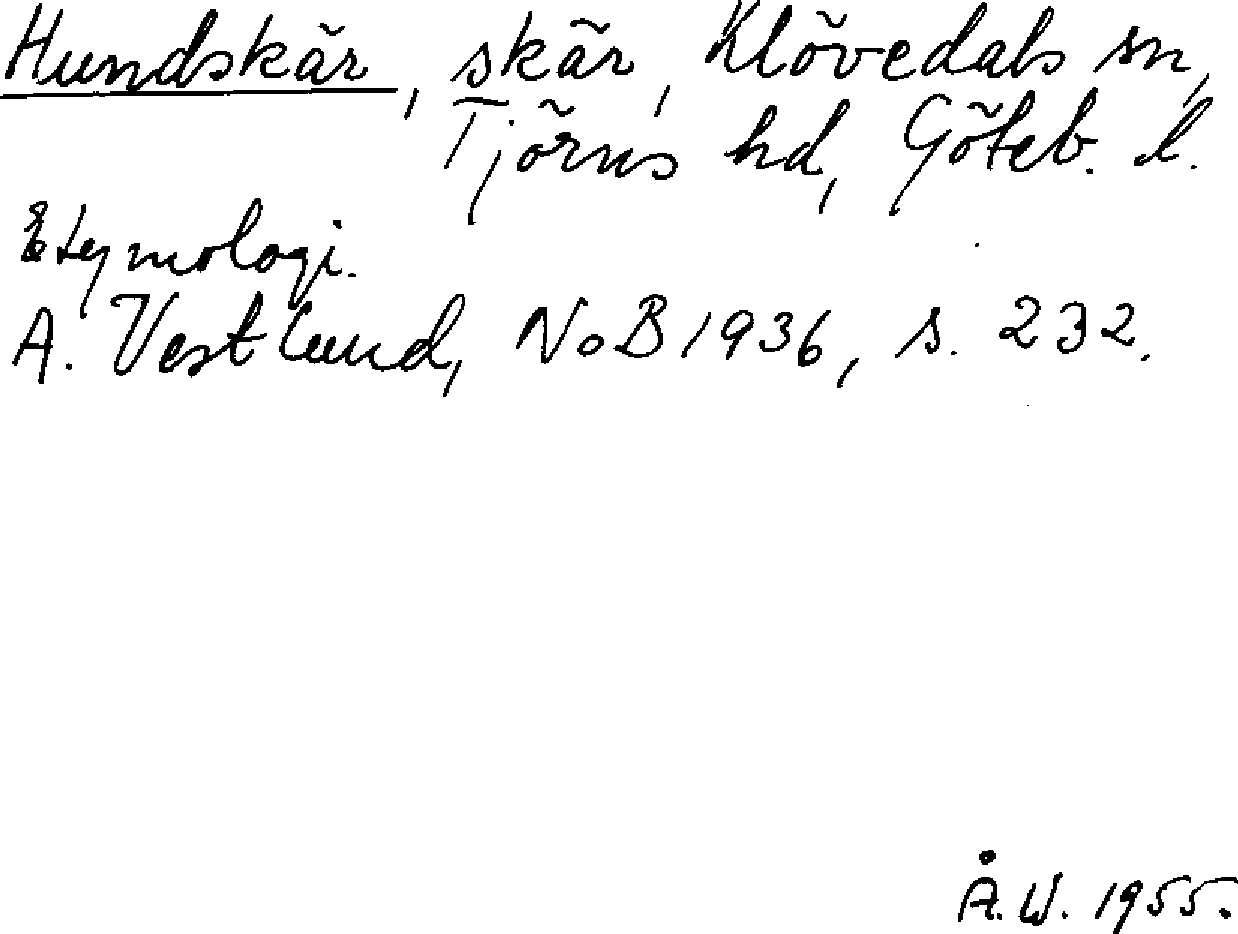 Hundskär, skär, Klövedals sn,
Tjörns hd, Göteb. l.
Etymologi.
A. Vestlund, NoB 1936, s. 232.
Å.W. 1955.